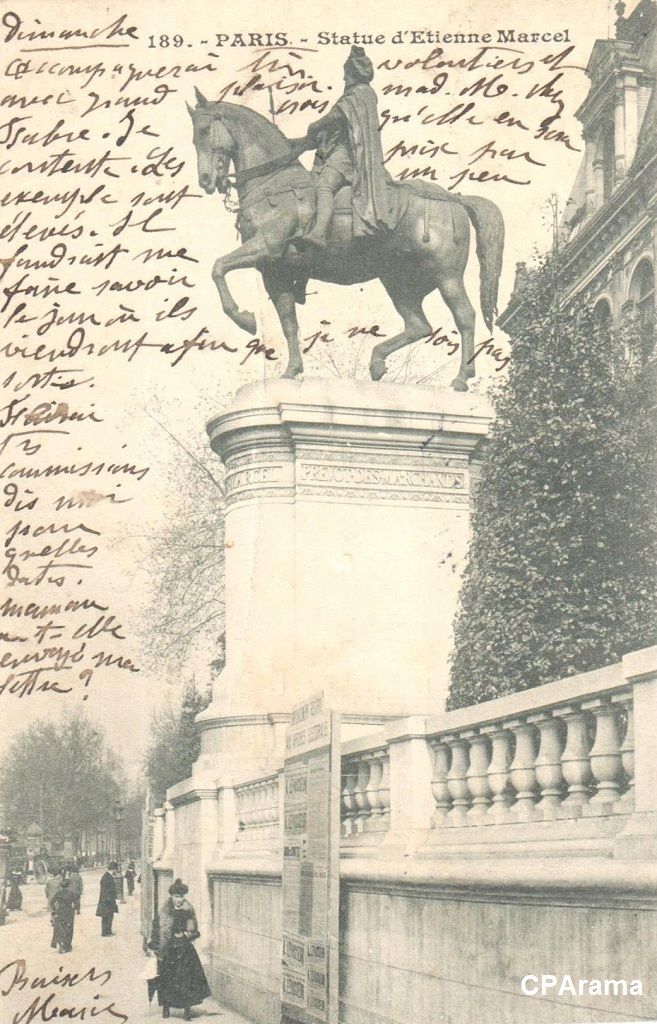 189. - PARIS. - Statue d'Etienne Marcel
dimanche
accompagnerai très volontiers et
avec grand plaisir. mad. M. chez
crois qu'elle en son
Isabre. Je
contente. Les prix par
exemple sont un peu
élevés. Il
faudrait me
faire savoir
le jour où ils
viendront afin que je ne sois pas
sortie.
Ferai
tes
commissions
dis moi
pour
quelles
dates.
maman
a-t-elle
envoyé ma
lettre ?
MARCEL PREVOT DES MARCHANDS
Baisers
Marie
CPArama